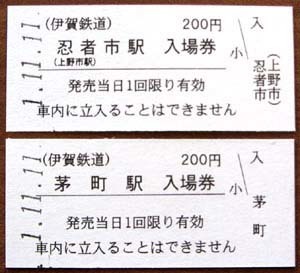 (伊賀鉄道) 200円
忍者市駅 入場券
(上野市駅)
発売当日1回限り有効
車内に立入ることはできません
小
入
(上野市)
忍者市
1.11.11
(伊賀鉄道) 200円
茅町駅 入場券
発売当日1回限り有効
車内に立入ることはできません
小
入
茅町
1.11.11